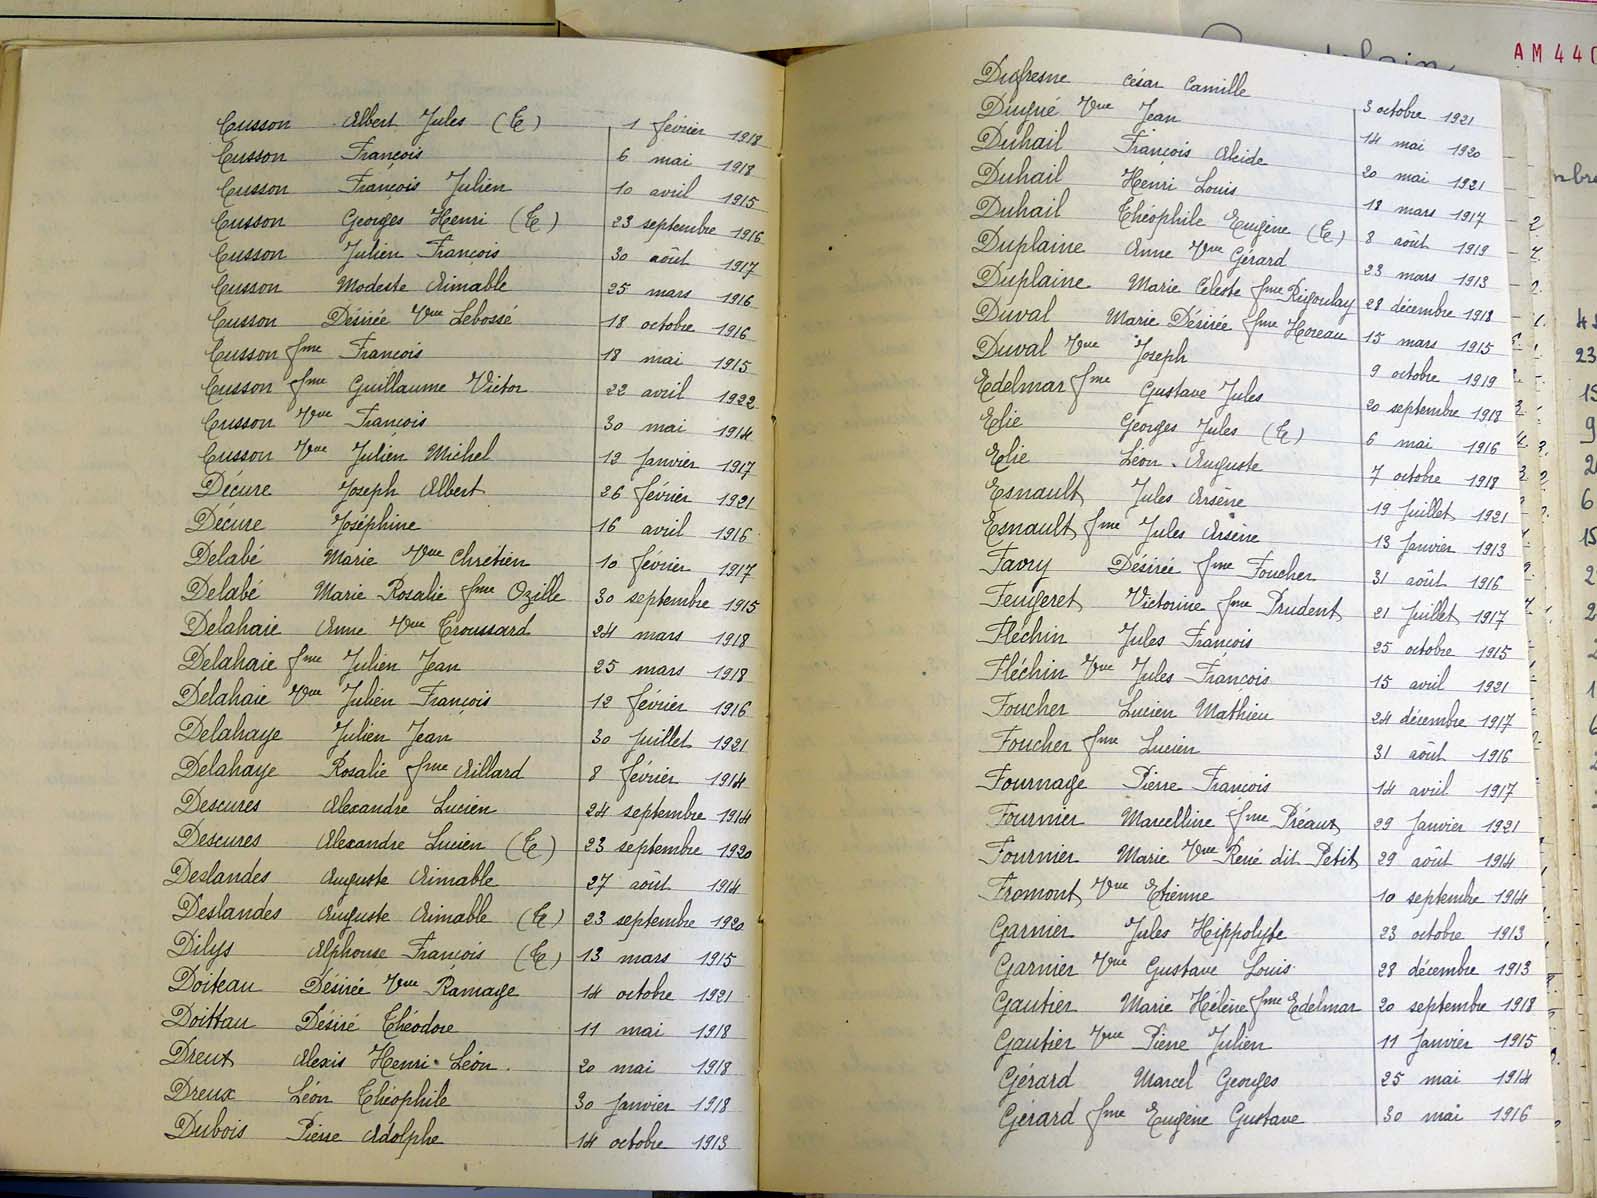 Cusson Albert Jules (E) 1 février 1918
Cusson François 6 mai 1918
Cusson François Julien 10 avril 1915
Cusson Georges Henri (E) 23 septembre 1916
Cusson Julien François 30 août 1917
Cusson Modeste Aimable 25 mars 1916
Cusson Désirée Vve Lebossé 18 octobre 1916
Cusson fme François 18 mai 1915
Cusson fme Guillaume Victor 22 avril 1922
Cusson Vve François 30 mai 1914
Cusson Vve Julien Michel 12 Janvier 1917
Décure Joseph Albert 26 février 1921
Décure Joséphine 16 avril 1916
Delabé Marie Vve Chrétien 10 février 1917
Delabé Marie Rosalie fme Ozille 30 septembre 1915
Delahaie Anne Vve Troussard 24 mars 1918
Delahaie fme Julien Jean 25 mars 1918
Delahaie Vve Julien François 12 février 1916
Delahaye Julien Jean 30 Juillet 1921
Delahaye Rosalie fme Aillard 8 février 1914
Descures Alexandre Lucien 24 septembre 1914
Descures Alexandre Lucien (E) 23 septembre 1920
Deslandes Auguste Aimable 27 août 1914
Deslandes Auguste Aimable (E) 23 septembre 1920
Dilys Alphonse François (E) 13 mars 1915
Doiteau Désirée Vve Ramage 14 octobre 1921
Doittau Désiré Théodore 11 mai 1918
Dreux Alexis Henri Léon 20 mai 1918
Dreux Léon Théophile 30 Janvier 1918
Dubois Pierre Adolphe 14 octobre 1913
AM 440
Dufresne César Camille 3 octobre 1921
Dugué Vve Jean 14 mai 1920
Duhail François Alcide 20 mai 1921
Duhail Henri Louis 18 mars 1917
Duhail Théophile Eugène (E) 8 août 1919
Duplaine Anne Vve Gérard 23 mars 1913
Duplaine Marie Céleste fme Rigoulay 28 décembre 1918
Duval Marie Désirée fme Horeau 15 mars 1915
Duval Vve Joseph 9 octobre 1919
Edelmar fme Gustave Jules 20 septembre 1918
Elie Georges Jules (E) 6 mai 1916
Elie Léon Auguste 7 octobre 1918
Esnault Jules Arsène 19 Juillet 1921
Esnault fme Jules Arsène 13 Janvier 1913
Favry Désirée fme Foucher 31 août 1916
Feugeret Victorine fme Prudent 21 Juillet 1917
Fléchin Jules François 25 octobre 1915
Fléchin Vve Jules François 15 avril 1921
Foucher Lucien Mathieu 24 décembre 1917
Foucher fme Lucien 31 août 1916
Fournage Pierre François 14 avril 1917
Fournier Marcelline fme Préaux 29 Janvier 1921
Fournier Marie Vve René dit Petit 29 août 1914
Fromont Vve Etienne 10 septembre 1914
Garnier Jules Hippolyte 23 octobre 1913
Garnier Vve Gustave Louis 28 décembre 1913
Gautier Marie Hélène fme Edelmar 20 septembre 1918
Gautier Vve Pierre Julien 11 Janvier 1915
Gérard Marcel Georges 25 mai 1914
Gérard fme Eugène Gustave 30 mai 1916